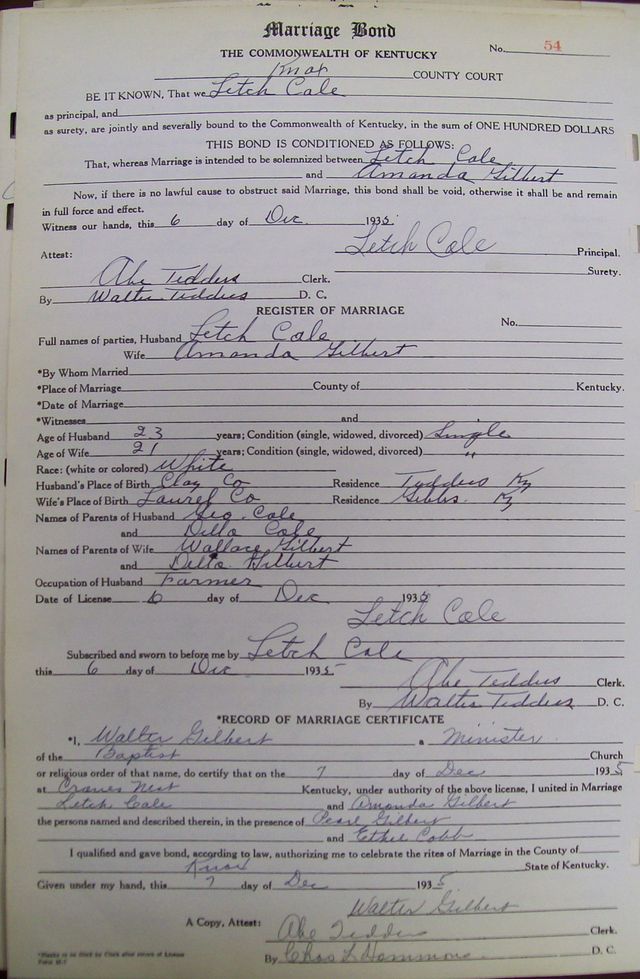 Marriage Bond
No. 54
THE COMMONWEALTH OF KENTUCKY
Knox COUNTY COURT
BE IT KNOWN, That we Letch Cole
as principal, and
as surety, are jointly and severally bound to the Commonwealth of Kentucky, in the sum of ONE HUNDRED DOLLARS
THIS BOND IS CONDITIONED AS FOLLOWS:
That, whereas Marriage is intended to be solemnized between Letch Cole
and Amanda Gilbert
Now, if there is no lawful cause to obstruct said Marriage, this bond shall be void, otherwise it shall be and remain
in full force and effect.
Witness our hands, this 6 day of Dec 1935
Letch Cole Principal.
Attest:
Surety.
Abe Tedders Clerk.
By Walter Tedders D. C.
REGISTER OF MARRIAGE
No.
Full names of parties, Husband Letch Cole
Wife Amanda Gilbert
*By Whom Married
*Place of Marriage County of Kentucky.
*Date of Marriage
*Witnesses and
Age of Husband 23 years; Condition (single, widowed, divorced) Single
Age of Wife 21 years; Condition (single, widowed, divorced) "
Race: (white or colored) White
Husband's Place of Birth Clay Co Residence Tedders Ky
Wife's Place of Birth Laurel Co Residence Gibbs Ky
Names of Parents of Husband Geo. Cole
and Della Cole
Names of Parents of Wife Wallace Gilbert
and Della Gilbert
Occupation of Husband Farmer
Date of License 6 day of Dec 1935
Letch Cole
Subscribed and sworn to before me by Letch Cole
this 6 day of Dec 1935
Abe Tedders Clerk.
By Walter Tedders D. C.
*RECORD OF MARRIAGE CERTIFICATE
*I, Walter Gilbert a Minister
of the Baptist Church
or religious order of that name, do certify that on the 7 day of Dec 1935
at Cranes Nest Kentucky, under authority of the above license, I united in Marriage
Letch Cole and Amanda Gilbert
the persons named and described therein, in the presence of Pearl Gilbert
and Ethel Cobb
I qualified and gave bond, according to law, authorizing me to celebrate the rites of Marriage in the County of
Knox State of Kentucky.
Given under my hand, this 7 day of Dec 1935
Walter Gilbert
A Copy, Attest: Abe Tedders Clerk.
By Chas L Hammons D. C.
*Blanks to be filled by Clerk after return of License